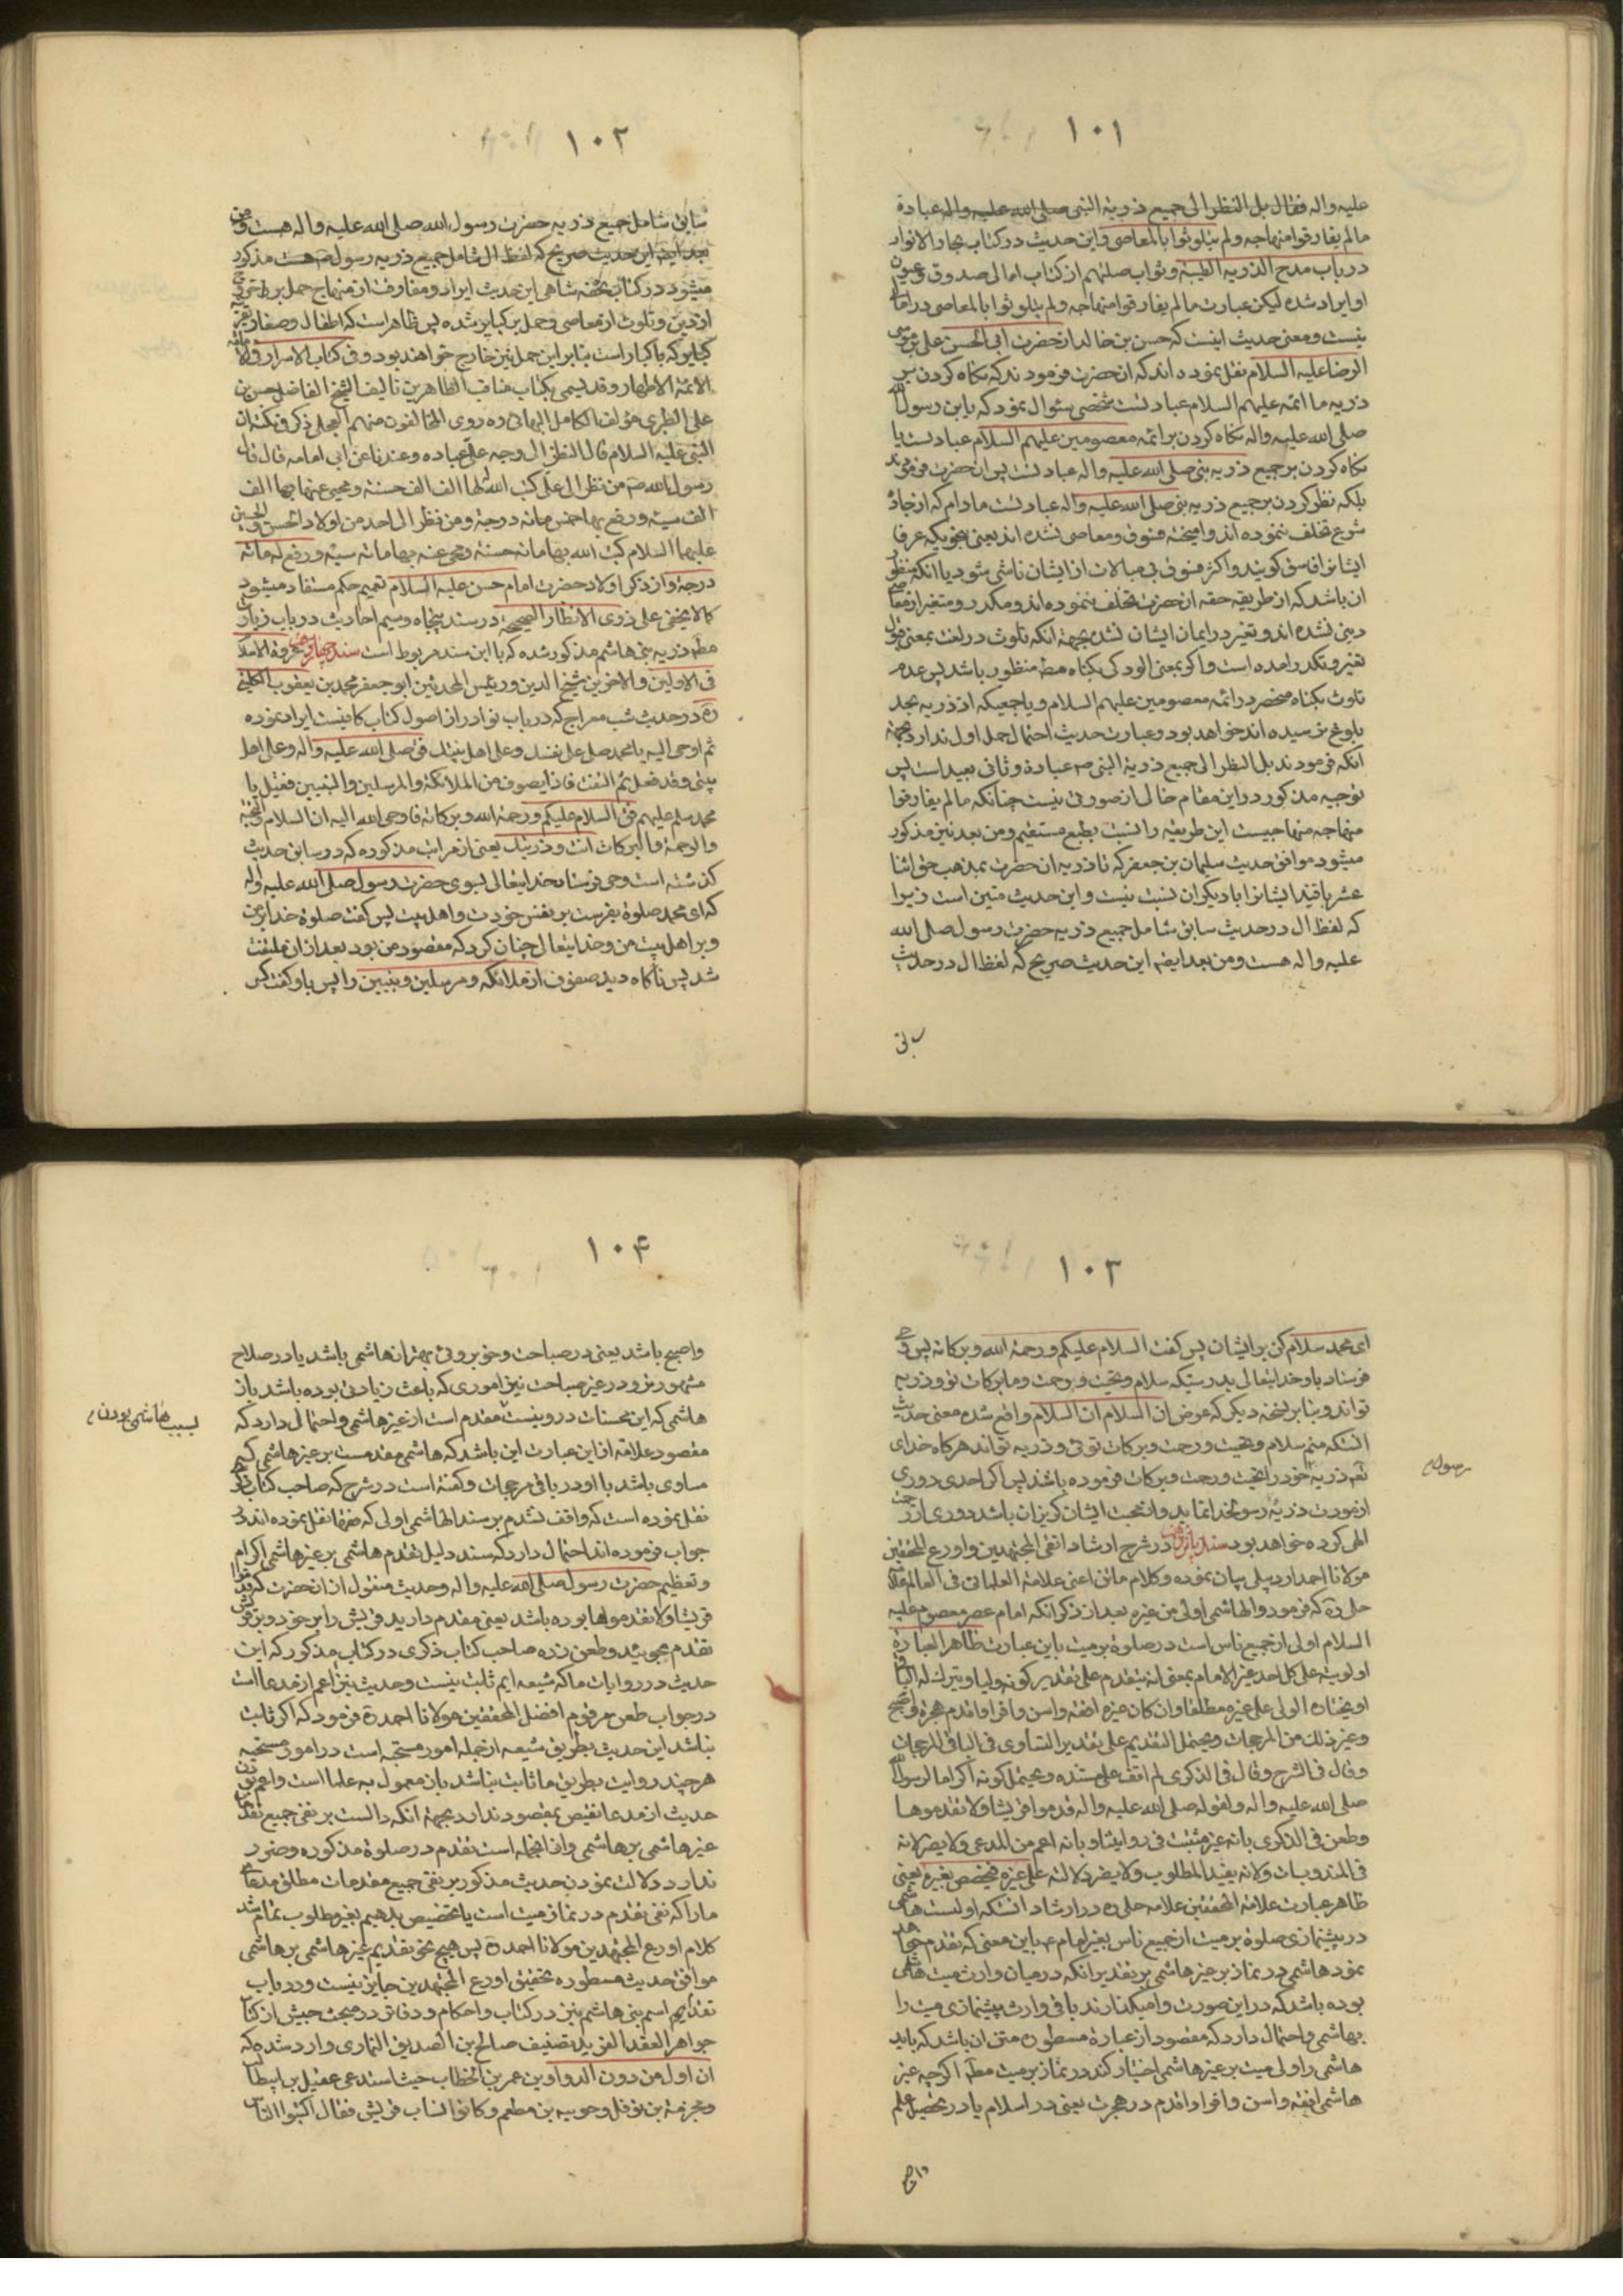 ١٠١
علیه واله فقال بل النظر الی جمیع ذریة النبی صلی الله علیه واله عبادة
مالم یفارقوا منهاجه ولم یتلوثوا بالمعاصی واین حدیث در کتاب بحار الانوار
در باب مدح الذریة الطیبة وثواب صلتهم از کتاب امالی صدوق وعیون
او ایراد شده لیکن عبارت مالم یفارقوا منهاجه ولم یتلوثوا بالمعاصی در امالی
نیست ومعنی حدیث اینست که حسن بن خالد از حضرت ابی الحسن علی بن موسی
الرضا علیه السلام نقل نموده اند که ان حضرت فرمودند که نکاه کردن بر
ذریه ما ائمه علیهم السلام عبادتست شخصی سئوال نمود که یا بن رسول الله
صلی الله علیه واله نکاه کردن بر ائمه معصومین علیهم السلام عبادتست یا
نکاه کردن بر جمیع ذریه نبی صلی الله علیه واله عبادتست پس ان حضرت فرمودند
بلکه نظر کردن بر جمیع ذریه نبی صلی الله علیه واله عبادتست مادام که از جادۀ
شرع تخلف ننموده اند وامیخته فسوق ومعاصی نشده اند یعنی بنحویکه عرفا
ایشانرا فاسق کویند واکثر فسوق بی مبالات از ایشان ناشی شود یا انکه منظور
ان باشد که از طریقه حقه ان حضرت تخلف ننموده اند ومکدر ومتغیر از معاصی
دینی نشده اند وتغیر در ایمان ایشان نشده بجهة انکه تلوث در لغت بمعنی
تغیر وتکدر امده است واکر بمعنی الودکی بکناه مط منظور باشد پس عدم
تلوث بکناه منحصر در ائمه معصومین علیهم السلام ویا جمعیکه از ذریه بحد
بلوغ نرسیده اند خواهد بود وعبارت حدیث احتمال حمل اول ندارد بجهة
انکه فرمودند بل النظر الی جمیع ذریة النبی ص عبادة وثانی بعید است پس
توجیه مذکور در این مقام خالی از صورتی نیست چنانکه مالم یفارقوا
منهاجه منهاجیست این طریقه را نسبت بطبع مستقیم ومن بعد نیز مذکور
میشود موافق حدیث سلیمان بن جعفر که تا ذریه ان حضرت بمذهب حق اثنا
عشر باقیند ایشانرا با دیکران نسبت نیست واین حدیث متین است زیرا
که لفظ ال در حدیث سابق شامل جمیع ذریه حضرت رسول صلی الله
علیه واله هست ومن بعد ایضا این حدیث صریح که لفظ ال در حدیث
سابق
١٠٢
سابق شامل جمیع ذریه حضرت رسول الله صلی الله علیه واله هست ومن
بعد ایضا این حدیث صریح که لفظ ال شامل جمیع ذریه رسول ص هست مذکور
میشود در کتاب تحفه شاهی این حدیث ایراد ومفارقت از منهاج حمل بر
از دین وتلوث از معاصی وحمل بر کبایر شده پس ظاهر است که اطفال وصغار
کبایر که با کبار است بنابر این حمل نیز خارج خواهند بود وفی کتاب الاسرار
الائمة الاطهار وقد یسمی بکتاب مناقب الطاهرین تالیف الشیخ الفاضل حسن بن
علی الطبری مؤلف الکامل البهائی ره روی المخالفون منهم العجلی ذکر فی نکته ان
النبی علیه السلام قال النظر الی وجه علی عباده وعندنا عن ابی امامه قال قال
رسول الله ص من نظر الی علی کتب الله لها الف الف حسنة ومحی عنه بها الف
الف سیئة ورفع بها خمس مائه درجة ومن نظر الی احد من اولاد الحسن والحسین
علیهما السلام کتب الله بها مائه حسنة ومحی عنه بها مائة سیئة ورفع له مائة
درجة واز ذکر اولاد حضرت امام حسن علیه السلام تعمیم حکم مستفاد میشود
کما لا یخفی علی ذوی الانظار الصحیحة در سند پنجاه وسیم احادیث در باب زیارت
مط ذریه بنی هاشم مذکور شده که با این سند مربوط است سند چهاردهم
فی الاولین والاخرین شیخ الدین ورئیس المحدثین ابو جعفر محمد بن یعقوب الکلینی
ره در حدیث شب معراج که در باب نوادر از اصول کتاب کافیست ایراد نموده
ثم اوحی الیه یا محمد صل علی نفسک وعلی اهل بیتک فق صلی الله علیه واله وعلی اهل
بیتی وقد فعل ثم التفت فاذا بصفوف من الملائکة والمرسلین والنبیین فقیل یا
محمد سلم علیهم فق السلام علیکم ورحمة الله وبرکاته فاوحی الله الیه ان السلام والتحیة
والرحمة والبرکات انت وذریتک یعنی از مراتب مذکوره که در سابق حدیث
کذشته است وحی فرستاد خدایتعالی بسوی حضرت رسول صلی الله علیه واله
که ای محمد صلوة بفرست بر نفس خودت واهل بیت پس کفت صلوة خدا بر من
وبر اهل بیت من وخدایتعالی چنان کرد که مقصود من بود بعد از ان ملتفت
شد پس ناکاه دید صفوف از ملائکه ومرسلین ونبیین را پس باو کفت کسی
١٠٣
ای محمد سلام کن بر ایشان پس کفت السلام علیکم ورحمة الله وبرکاته پس وحی
فرستاد باو خدایتعالی بدرستیکه سلام وتحیت ورحمت وما برکات تو وذریه
تواند وبنابر نسخه دیکر که عوض ان السلام انا السلام واقع شده معنی حدیث
انستکه منم سلام وتحیت ورحمت وبرکات توئی وذریه تواند هرکاه خدای
تعم ذریه خود را تحیت ورحمت وبرکات فرموده باشد پس اکر احدی دوری
از مودت ذریه رسولخدا نماید واز محبت ایشان کریزان باشد دوری از رحمت
الهی کرده خواهد بود سند پانزدهم در شرح ارشاد اتقی المجتهدین واورع المحققین
مولانا احمد اردبیلی بیان نموده وکلام ماتن اعنی علامة العلمائی فی العالم علامه
حلی ره که فرمود والهاشمی اولی من غیره بعد از ذکر انکه امام عصر معصوم علیه
السلام اولی از جمیع ناس است در صلوة بر میت باین عبارت ظاهر العبارة
اولویته علی کل احد غیر الامام بمعنی انه یتقدم علی تقدیر کونه ولیا ویترک له الباقی
او یختاره الولی علی غیره مطلقا وان کان غیره افقه واسن واقرا واقدم هجرة واصبح
وغیر ذلک من المرجحات ویحتمل التقدیم علی تقدیر التساوی فی الباقی المرجحات
وقال فی الشرح وقال فی الذکری لم اقف علی مستنده ویحتمل کونه اکراما لرسول الله
صلی الله علیه واله ولقوله صلی الله علیه واله قدموا قریشا ولا تقدموها
وطعن فی الذکری بانه غیر مثبت فی روایتنا وبانه اعم من المدعی ولا یضر لانه
فی المندوبات ولانه یفید المطلوب ولا یضر دلالته علی غیره فیخصص بغیره یعنی
ظاهر عبارت علامة المحققین علامه حلی ره در ارشاد انستکه اولیت هاشمی
در پیشنمازی صلوة بر میت از جمیع ناس بغیر امام ع باین معنی که تقدم خواهد
نمود هاشمی در نماز بر غیر هاشمی بر تقدیر انکه در میان وارث میت هاشمی
بوده باشد که در این صورت وامیکذارند باقی وارث پیشنمازی میت را
بهاشمی واحتمال دارد که مقصود از عبارة مسطوره متن ان باشد که باید
هاشمی را ولی میت بر غیر هاشمی اختیار کند در نماز بر میت مط اکرچه غیر
هاشمی افقه واسن واقرا واقدم در هجرت یعنی در اسلام یا در تحصیل علم
واصبح
رسول
١٠۴
واصبح باشد یعنی در صباحت وخوبروئی بهتر از هاشمی باشد یا در صلاح
مشهورتر ودر غیر صباحت نیز اموری که باعث زیادتی بوده باشد باز
هاشمی که این محسنات در او نیست مقدم است از غیر هاشمی واحتمالی دارد که
مقصود علامه از این عبارت این باشد که هاشمی مقدمست بر غیر هاشمی که
مساوی باشد با او در باقی مرجحات وکفته است در شرح که صاحب کتاب ذکری
نقل نموده است که واقف نشدم بر سند الهاشمی اولی که فقها نقل نموده اند
جواب فرموده اند احتمال دارد که سند دلیل تقدم هاشمی بر غیر هاشمی اکرام
وتعظیم حضرت رسول صلی الله علیه واله وحدیث منقول از ان حضرت که قدموا
قریشا ولا تقدموها بوده باشد یعنی مقدم دارید قریش را بر خود وبر قریش
تقدم مجوئید وطعن زده صاحب کتاب ذکری در کتاب مذکور که این
حدیث در روایات ما که شیعه ایم ثابت نیست وحدیث نیز اعم از مدعا است
در جواب طعن مرقوم افضل المحققین مولانا احمد ره فرمود که اکر ثابت
نباشد این حدیث بطریق شیعه از جمله امور مستحبه است در امور مستحبه
هر چند روایت بطریق ما ثابت نباشد بان معمول به علما است واعم بودن
حدیث از مدعا نقیض بمقصود ندارد بجهة انکه دالست بر نفی جمیع تقدمات
غیر هاشمی بر هاشمی واز انجمله است تقدم در صلوة مذکوره وضرر
ندارد دلالت نمودن حدیث مذکور بر نفی جمیع مقدمات مطلق مدعای
ما را که نفی تقدم در نماز میت است یا تخصیص بدهیم بغیر مطلوب تمام شد
کلام اورع المجتهدین مولانا احمد ره پس هیچ نحو تقدیم غیر هاشمی بر هاشمی
موافق حدیث مسطوره بتحقیق اورع المجتهدین جایز نیست ودر باب
تقدیم اسم بنی هاشم نیز در کتاب واحکام ودفاتر در مبحث حبش از کتاب
جواهر العقد الفرید تصنیف صالح بن الصدیق النمازی وارد شده که
ان اول من دون الدواوین عمر بن الخطاب حیث استدعی عقیل بن ابیطالب
ومخرمة بن نوفل وجبیر بن مطعم وکانوا نساب قریش فقال اکتبوا الناس
بسبب هاشمی بودن